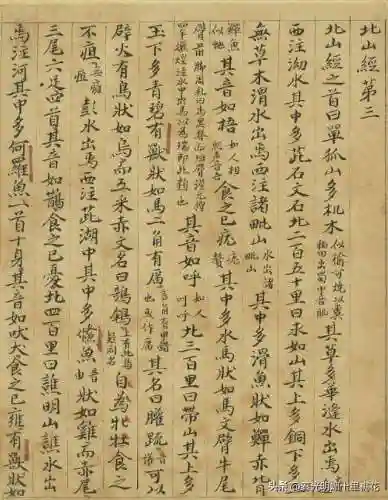 北山經第三
北山經之首曰單狐山多机木似榆可燒以糞稻田出蜀中音肌其草多華逢水出焉
西注泑水其中多茈石文石北二百五十里曰求如山其上多銅下多
無草木渭水出焉西注諸毗山水出諸毗山其中多滑魚狀如鱓赤背
鱓魚似虵其音如梧如人相枝梧聲音吾食之已疣疣贅其中多水馬狀如馬文臂牛尾
臂前脚周礼曰馬黑脊而班臂漢元狩四年燉煌渥洼水中出馬以為瑞即此類也其音如呼如人叫呼北三百里曰帶山其上多
玉下多青碧有獸狀如馬一角有厲也或作厲其名曰䑏疏音可以
辟火有鳥狀如烏而五采赤文名曰鵸鵌上有此鳥疑同名自為牝牡食之
不疽無癰疽彭水出焉西注茈湖中其中多儵魚音由狀如雞而赤尾
三尾六足四首其音如鵲食之已憂北四百里曰譙明山譙水出
焉注河其中多何羅魚一首十身其音如吠犬食之已癰有獸狀如